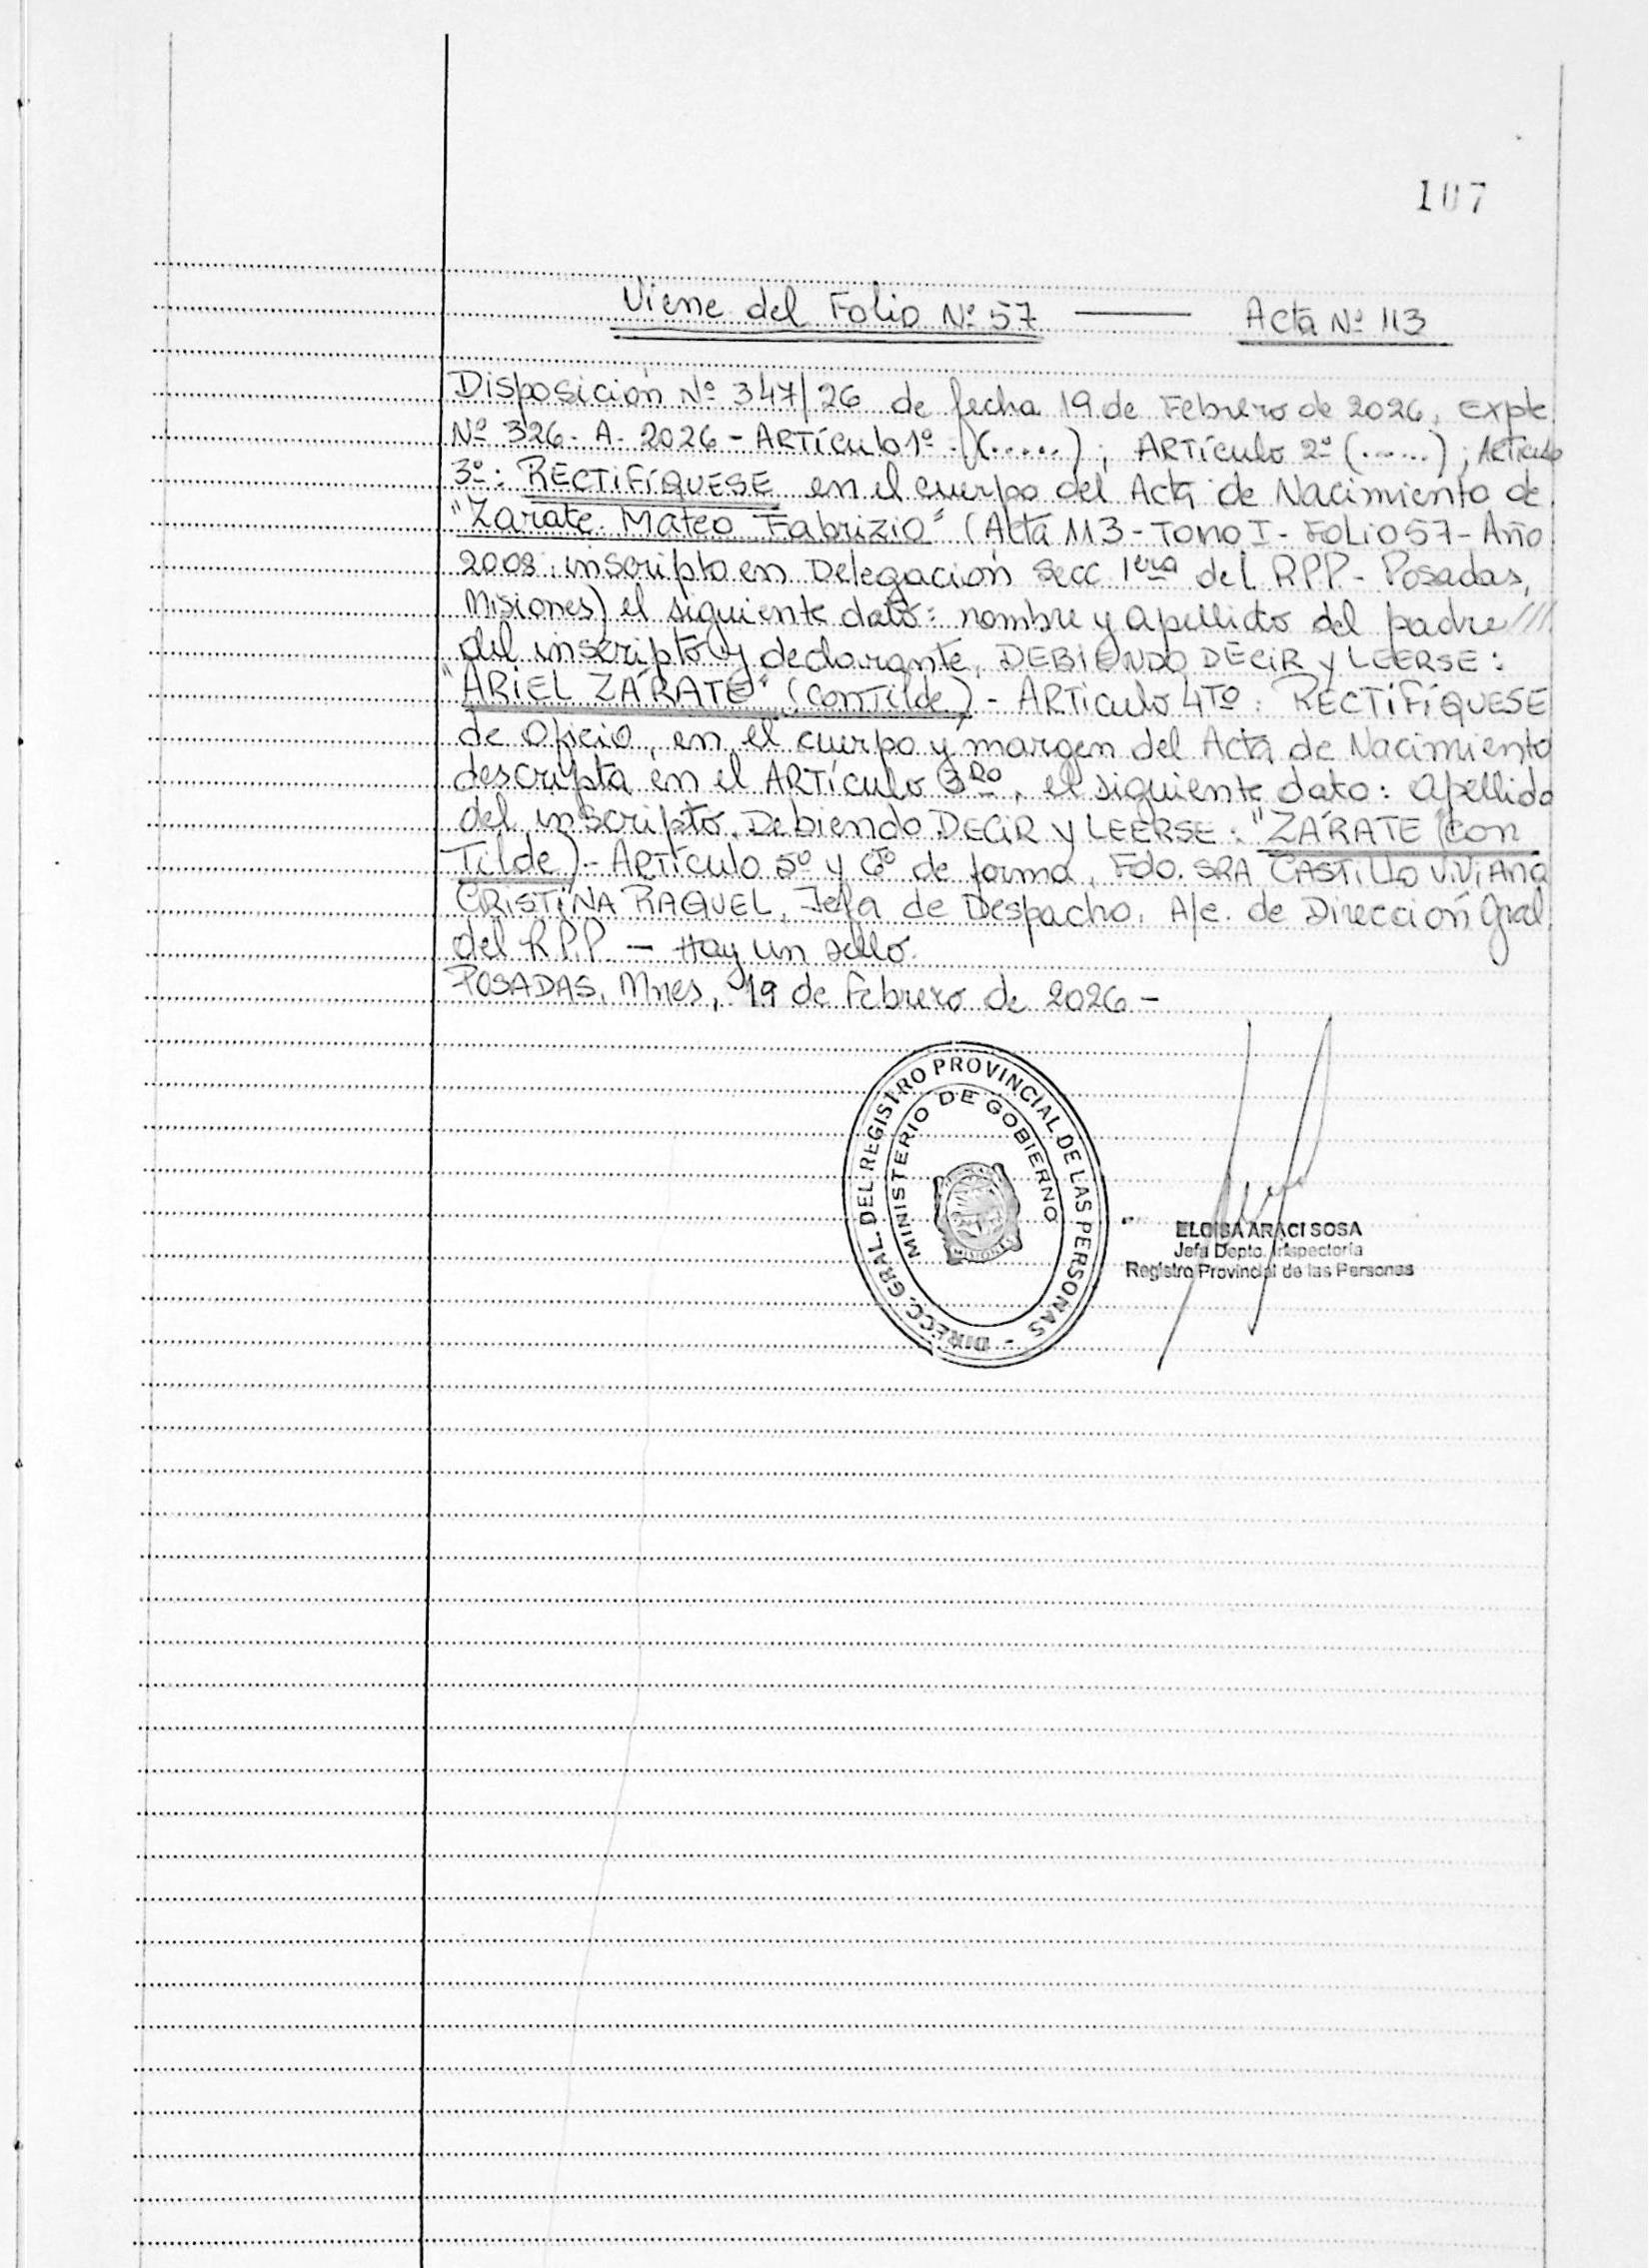 107
Viene del Folio Nº 57 —— Acta Nº 113
Disposición Nº 347/26 de fecha 19 de Febrero de 2026, Expte.
Nº 326-A-2026 - ARTículo 1º - (.....); ARTículo 2º (.....); ARTículo
3º: RECTIFÍQUESE en el cuerpo del Acta de Nacimiento de
"Zarate Mateo Fabrizio" (Acta 113 - Tomo I - FOLIO 57 - Año
2008, inscripto en Delegación Secc 1era del RPP - Posadas,
Misiones) el siguiente dato: nombre y apellido del padre ///
del inscripto y declarante, DEBIENDO DECIR y LEERSE:
"ARIEL ZÁRATE" (con Tilde) - ARTículo 4TO: RECTIFÍQUESE
de Oficio, en el cuerpo y margen del Acta de Nacimiento
descripta en el ARTículo 3RO, el siguiente dato: apellido
del inscripto, Debiendo DECIR y LEERSE: "ZÁRATE (con
Tilde) - ARTículo 5º y 6TO de forma, Fdo. SRA CASTILLO VIVIANA
CRISTINA RAQUEL, Jefa de Despacho, A/c. de Dirección Gral
del R.P.P. - Hay un sello.
POSADAS, Mnes, 19 de Febrero de 2026 -
DIRECC. GRAL. DEL REGISTRO PROVINCIAL DE LAS PERSONAS -
MINISTERIO DE GOBIERNO
MISIONES
ELOISA ARACI SOSA
Jefa Depto. Inspectoría
Registro Provincial de las Personas